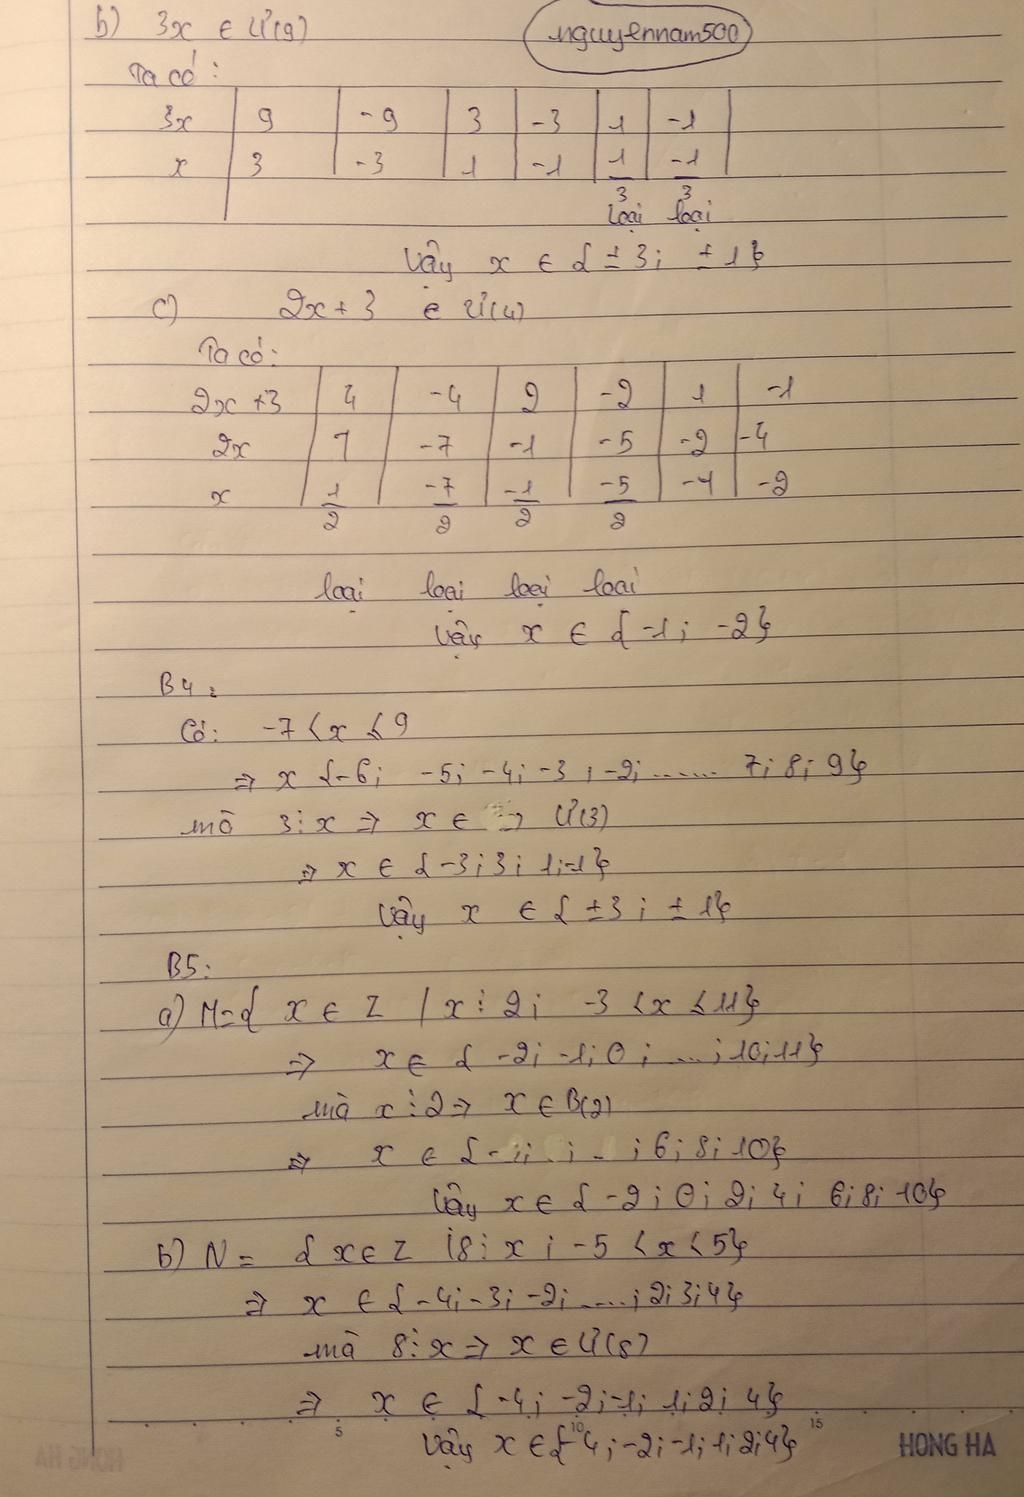 b) 3x ∈ Ư(9)
nguyennam500
Ta có:
3x 9 -9 3 -3 1 -1
x 3 -3 1 -1 1/3 -1/3
loại loại
Vậy x ∈ { ±3; ±1}
c) 2x + 3 ∈ Ư(4)
Ta có:
2x +3 4 -4 2 -2 1 -1
2x 1 -7 -1 -5 -2 -4
x 1/2 -7/2 -1/2 -5/2 -1 -2
loại loại loại loại
Vậy x ∈ { -1; -2}
B4:
Có: -7 < x < 9
⇒ x {-6; -5; -4; -3; -2; ....... 7; 8; 9}
mà 3⋮x ⇒ x ∈ Ư(3)
⇒ x ∈ {-3; 3; 1; -1}
Vậy x ∈ { ±3; ±1}
B5:
a) M={ x ∈ Z / x⋮2; -3 < x < 11}
⇒ x ∈ { -2; -1; 0; ...; 10; 11}
mà x⋮2 ⇒ x ∈ B(2)
⇒ x ∈ { ; 6; 8; 10}
Vậy x ∈ { -2; 0; 2; 4; 6; 8; 10}
b) N = { x ∈ Z |8⋮x; -5 < x < 5}
⇒ x ∈ {-4; -3; -2; ....; 2; 3; 4}
mà 8⋮x ⇒ x ∈ Ư(8)
⇒ x ∈ {-4; -2; -1; 1; 2; 4}
5 10 15
Vậy x ∈ {-4; -2; -1; 1; 2; 4}
HONG HA